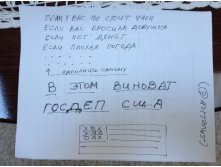 ЕСЛИ У ВАС НЕ СТОИТ ЧЛЕН
ЕСЛИ ВАС БРОСИЛА ДЕВУШКА
ЕСЛИ НЕТ ДЕНЕГ
ЕСЛИ ПЛОХАЯ ПОГОДА
. . . . . .
. . . . . .
↑ ЗАПОЛНИТЬ САМОМУ
В ЭТОМ ВИНОВАТ
ГОСДЕП США